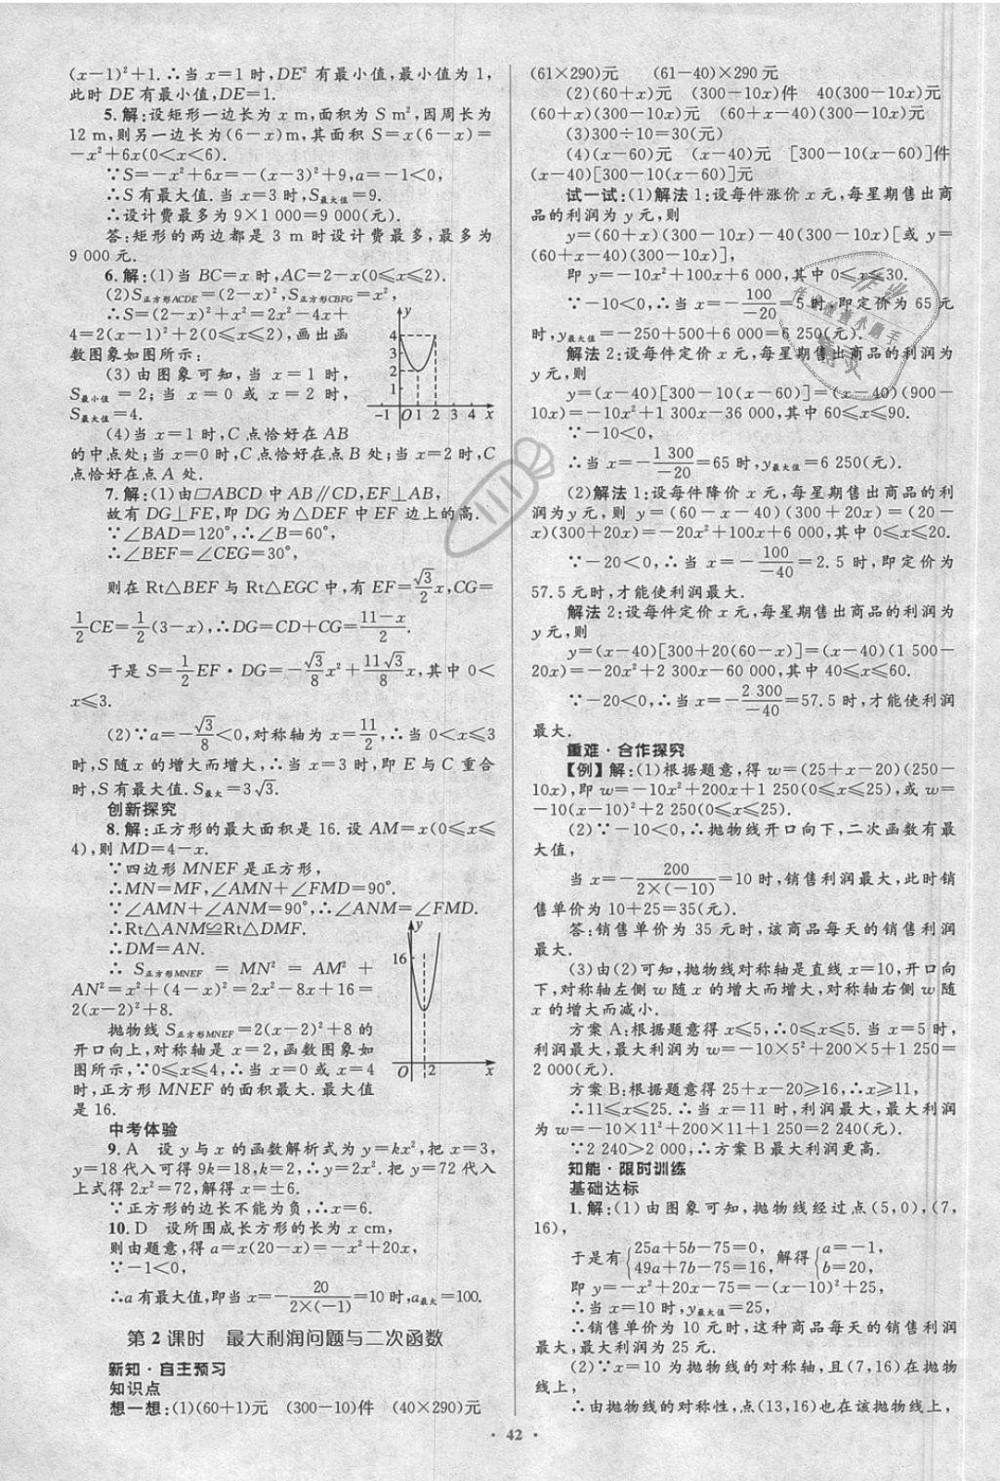 (x－1)²＋1. ∴当 x＝1 时,DE² 有最小值,最小值为 1,
此时 DE 有最小值,DE＝1.
5. 解:设矩形一边长为 x m,面积为 S m²,因周长为
12 m,则另一边长为(6－x)m,其面积 S＝x(6－x)＝
－x²＋6x(0＜x＜6).
∵S＝－x²＋6x＝－(x－3)²＋9,a＝－1＜0,
∴S 有最大值. 当 x＝3 时,S最大值＝9.
∴设计费最多为 9×1 000＝9 000(元).
答:矩形的两边都是 3 m 时设计费最多,最多为
9 000 元.
6. 解:(1)当 BC＝x 时,AC＝2－x(0≤x≤2).
(2)S正方形ACDE＝(2－x)²,S正方形CBFG＝x²,
∴S＝(2－x)²＋x²＝2x²－4x＋
4＝2(x－1)²＋2(0≤x≤2),画出函
数图象如图所示:
(3)由图象可知,当 x＝1 时,
S最小值＝2;当 x＝0 或 x＝2 时,
S最大值＝4.
(4)当 x＝1 时,C 点恰好在 AB
的中点处;当 x＝0 时,C 点恰好在点 B 处;当 x＝2 时,C
点恰好在点 A 处.
y
4
3
2
1
－1 O 1 2 3 4 x
7. 解:(1)由▱ABCD 中 AB∥CD,EF⊥AB,
故有 DG⊥FE,即 DG 为△DEF 中 EF 边上的高.
∵∠BAD＝120°,∴∠B＝60°,
∴∠BEF＝∠CEG＝30°,
则在 Rt△BEF 与 Rt△EGC 中,有 EF＝√3/2 x,CG＝
1/2 CE＝1/2 (3－x),∴DG＝CD＋CG＝(11－x)/2.
于是 S＝1/2 EF·DG＝－√3/8 x²＋11√3/8 x,其中 0＜
x≤3.
(2)∵a＝－√3/8＜0,对称轴为 x＝11/2,∴当 0＜x≤3
时,S 随 x 的增大而增大,∴当 x＝3 时,即 E 与 C 重合
时,S 有最大值. S最大＝3√3.
创新探究
8. 解:正方形的最大面积是 16. 设 AM＝x(0≤x≤
4),则 MD＝4－x.
∵四边形 MNEF 是正方形,
∴MN＝MF,∠AMN＋∠FMD＝90°.
∵∠AMN＋∠ANM＝90°,∴∠ANM＝∠FMD.
∴Rt△ANM≌Rt△DMF.
∴DM＝AN.
∴S正方形MNEF＝MN²＝AM²＋
AN²＝x²＋(4－x)²＝2x²－8x＋16＝
2(x－2)²＋8.
抛物线 S正方形MNEF＝2(x－2)²＋8 的
开口向上,对称轴是 x＝2,函数图象如
图所示,∵0≤x≤4,∴当 x＝0 或 x＝4
时,正方形 MNEF 的面积最大. 最大值
是 16.
y
16
O 2 x
中考体验
9. A　设 y 与 x 的函数解析式为 y＝kx²,把 x＝3,
y＝18 代入可得 9k＝18,k＝2,∴y＝2x². 把 y＝72 代入
上式得 2x²＝72,解得 x＝±6.
∵正方形的边长不能为负,∴x＝6.
10. D　设所围成长方形的长为 x cm,
则由题意,得 a＝x(20－x)＝－x²＋20x,
∵－1＜0,
∴a 有最大值,即当 x＝－20/(2×(－1))＝10 时,a最大＝100.
第 2 课时　最大利润问题与二次函数
新知·自主预习
知识点
想一想:(1)(60＋1)元　(300－10)件　(40×290)元
(61×290)元　(61－40)×290元
(2)(60＋x)元　(300－10x)件　40(300－10x)元
(60＋x)(300－10x)元　(60＋x－40)(300－10x)元
(3)300÷10＝30(元)
(4)(x－60)元　(x－40)元　[300－10(x－60)]件
(x－40)[300－10(x－60)]元
试一试:(1)解法 1:设每件涨价 x 元,每星期售出商
品的利润为 y 元,则
y＝(60＋x)(300－10x)－40(300－10x)[或 y＝
(60＋x－40)(300－10x)],
即 y＝－10x²＋100x＋6 000,其中 0≤x≤30.
∵－10＜0,∴当 x＝－100/－20＝5 时,即定价为 65 元
时,y最大值＝－250＋500＋6 000＝6 250(元).
解法 2:设每件定价 x 元,每星期售出商品的利润为
y 元,则
y＝(x－40)[300－10(x－60)]＝(x－40)(900－
10x)＝－10x²＋1 300x－36 000,其中 60≤x≤90.
∵－10＜0,
∴当 x＝－1 300/－20＝65 时,y最大值＝6 250(元).
(2)解法 1:设每件降价 x 元,每星期售出商品的利
润为y元,则 y＝(60－x－40)(300＋20x)＝(20－
x)(300＋20x)＝－20x²＋100x＋6 000,其中 0≤x≤20.
∵－20＜0,∴当 x＝－100/－40＝2.5 时,即定价为
57.5 元时,才能使利润最大.
解法 2:设每件定价 x 元,每星期售出商品的利润为
y 元,则
y＝(x－40)[300＋20(60－x)]＝(x－40)(1 500－
20x)＝－20x²＋2 300x－60 000,其中 40≤x≤60.
∵－20＜0,∴当 x＝－2 300/－40＝57.5 时,才能使利润
最大.
重难·合作探究
【例】解:(1)根据题意,得 w＝(25＋x－20)(250－
10x),即 w＝－10x²＋200x＋1 250(0≤x≤25),或 w＝
－10(x－10)²＋2 250(0≤x≤25).
(2)∵－10＜0,∴抛物线开口向下,二次函数有最
大值,
当 x＝－200/(2×(－10))＝10 时,销售利润最大,此时销
售单价为 10＋25＝35(元).
答:销售单价为 35 元时,该商品每天的销售利润
最大.
(3)由(2)可知,抛物线对称轴是直线 x＝10,开口向
下,对称轴左侧 w 随 x 的增大而增大,对称轴右侧 w 随
x 的增大而减小.
方案 A:根据题意得 x≤5,∴0≤x≤5. 当 x＝5 时,
利润最大,最大利润为 w＝－10×5²＋200×5＋1 250＝
2 000(元).
方案 B:根据题意得 25＋x－20≥16,∴x≥11,
∴11≤x≤25. ∴当 x＝11 时,利润最大,最大利润
为 w＝－10×11²＋200×11＋1 250＝2 240(元).
∵2 240＞2 000,∴方案 B 最大利润更高.
知能·限时训练
基础达标
1. 解:(1)由图象可知,抛物线经过点(5,0),(7,
16),
于是有{25a＋5b－75＝0, 49a＋7b－75＝16, 解得{a＝－1, b＝20,
即 y＝－x²＋20x－75＝－(x－10)²＋25,
∴当 x＝10 时,y最大值＝25,
∴销售单价为 10 元时,这种商品每天的销售利润
最大,最大利润为 25 元.
(2)∵x＝10 为抛物线的对称轴,且(7,16)在抛物
线上,
∴由抛物线的对称性,点(13,16)也在该抛物线上,
· 42 ·